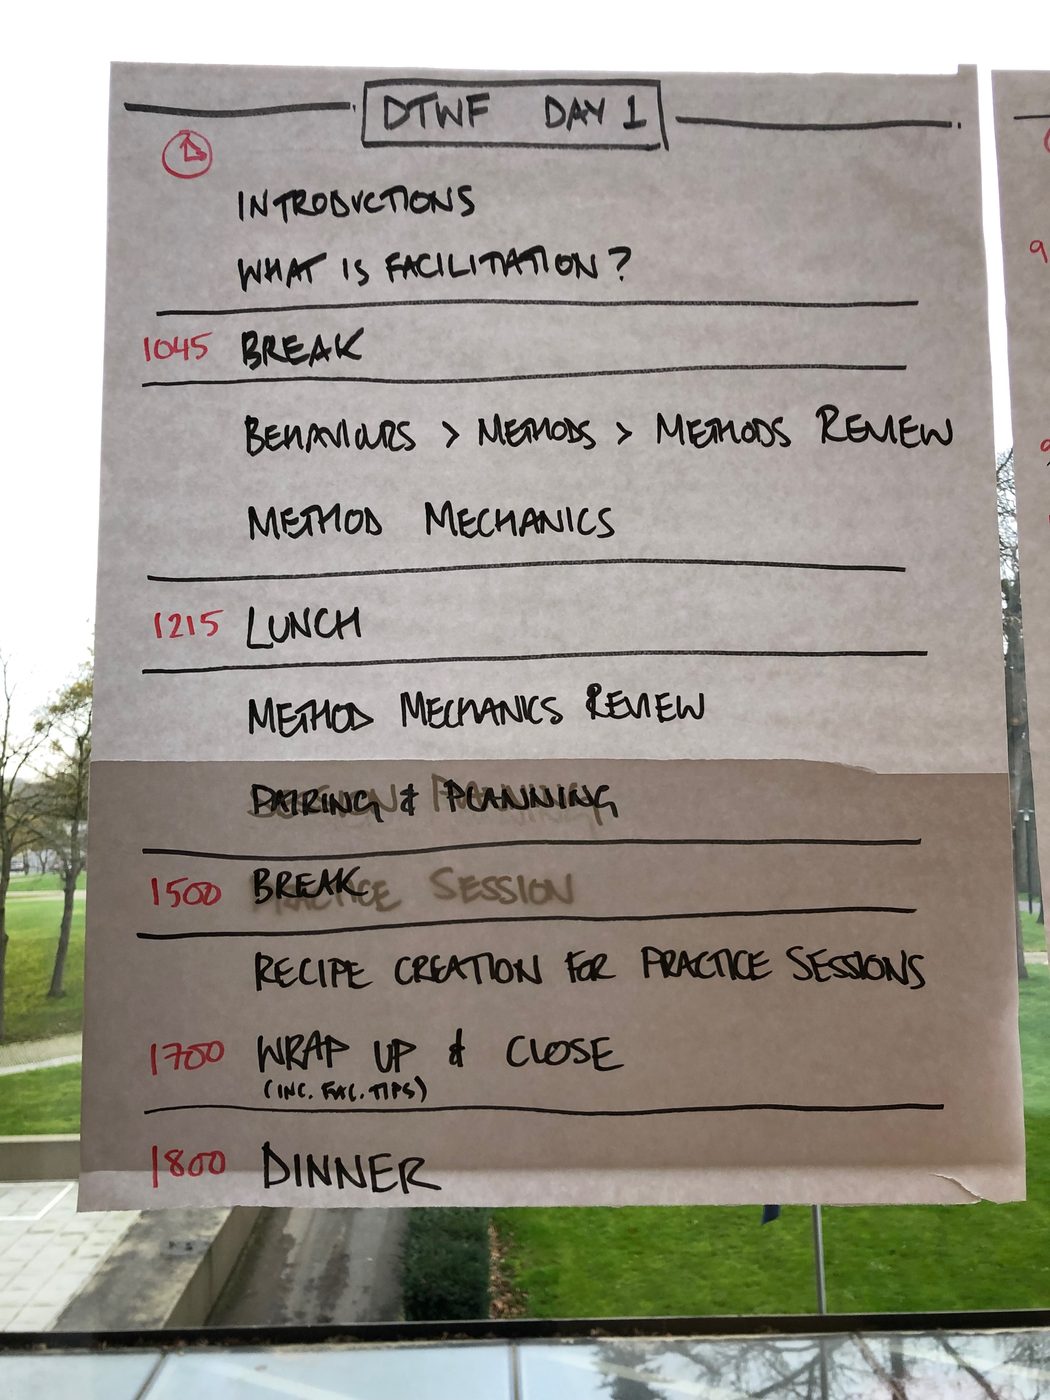 DTWF DAY 1
INTRODUCTIONS
WHAT IS FACILITATION?
1045 BREAK
BEHAVIOURS > METHODS > METHODS REVIEW
METHOD MECHANICS
1215 LUNCH
METHOD MECHANICS REVIEW
PAIRING & PLANNING
1500 BREAK
PRACTICE SESSION
RECIPE CREATION FOR PRACTICE SESSIONS
1700 WRAP UP & CLOSE
(INC. FAC. TIPS)
1800 DINNER
9